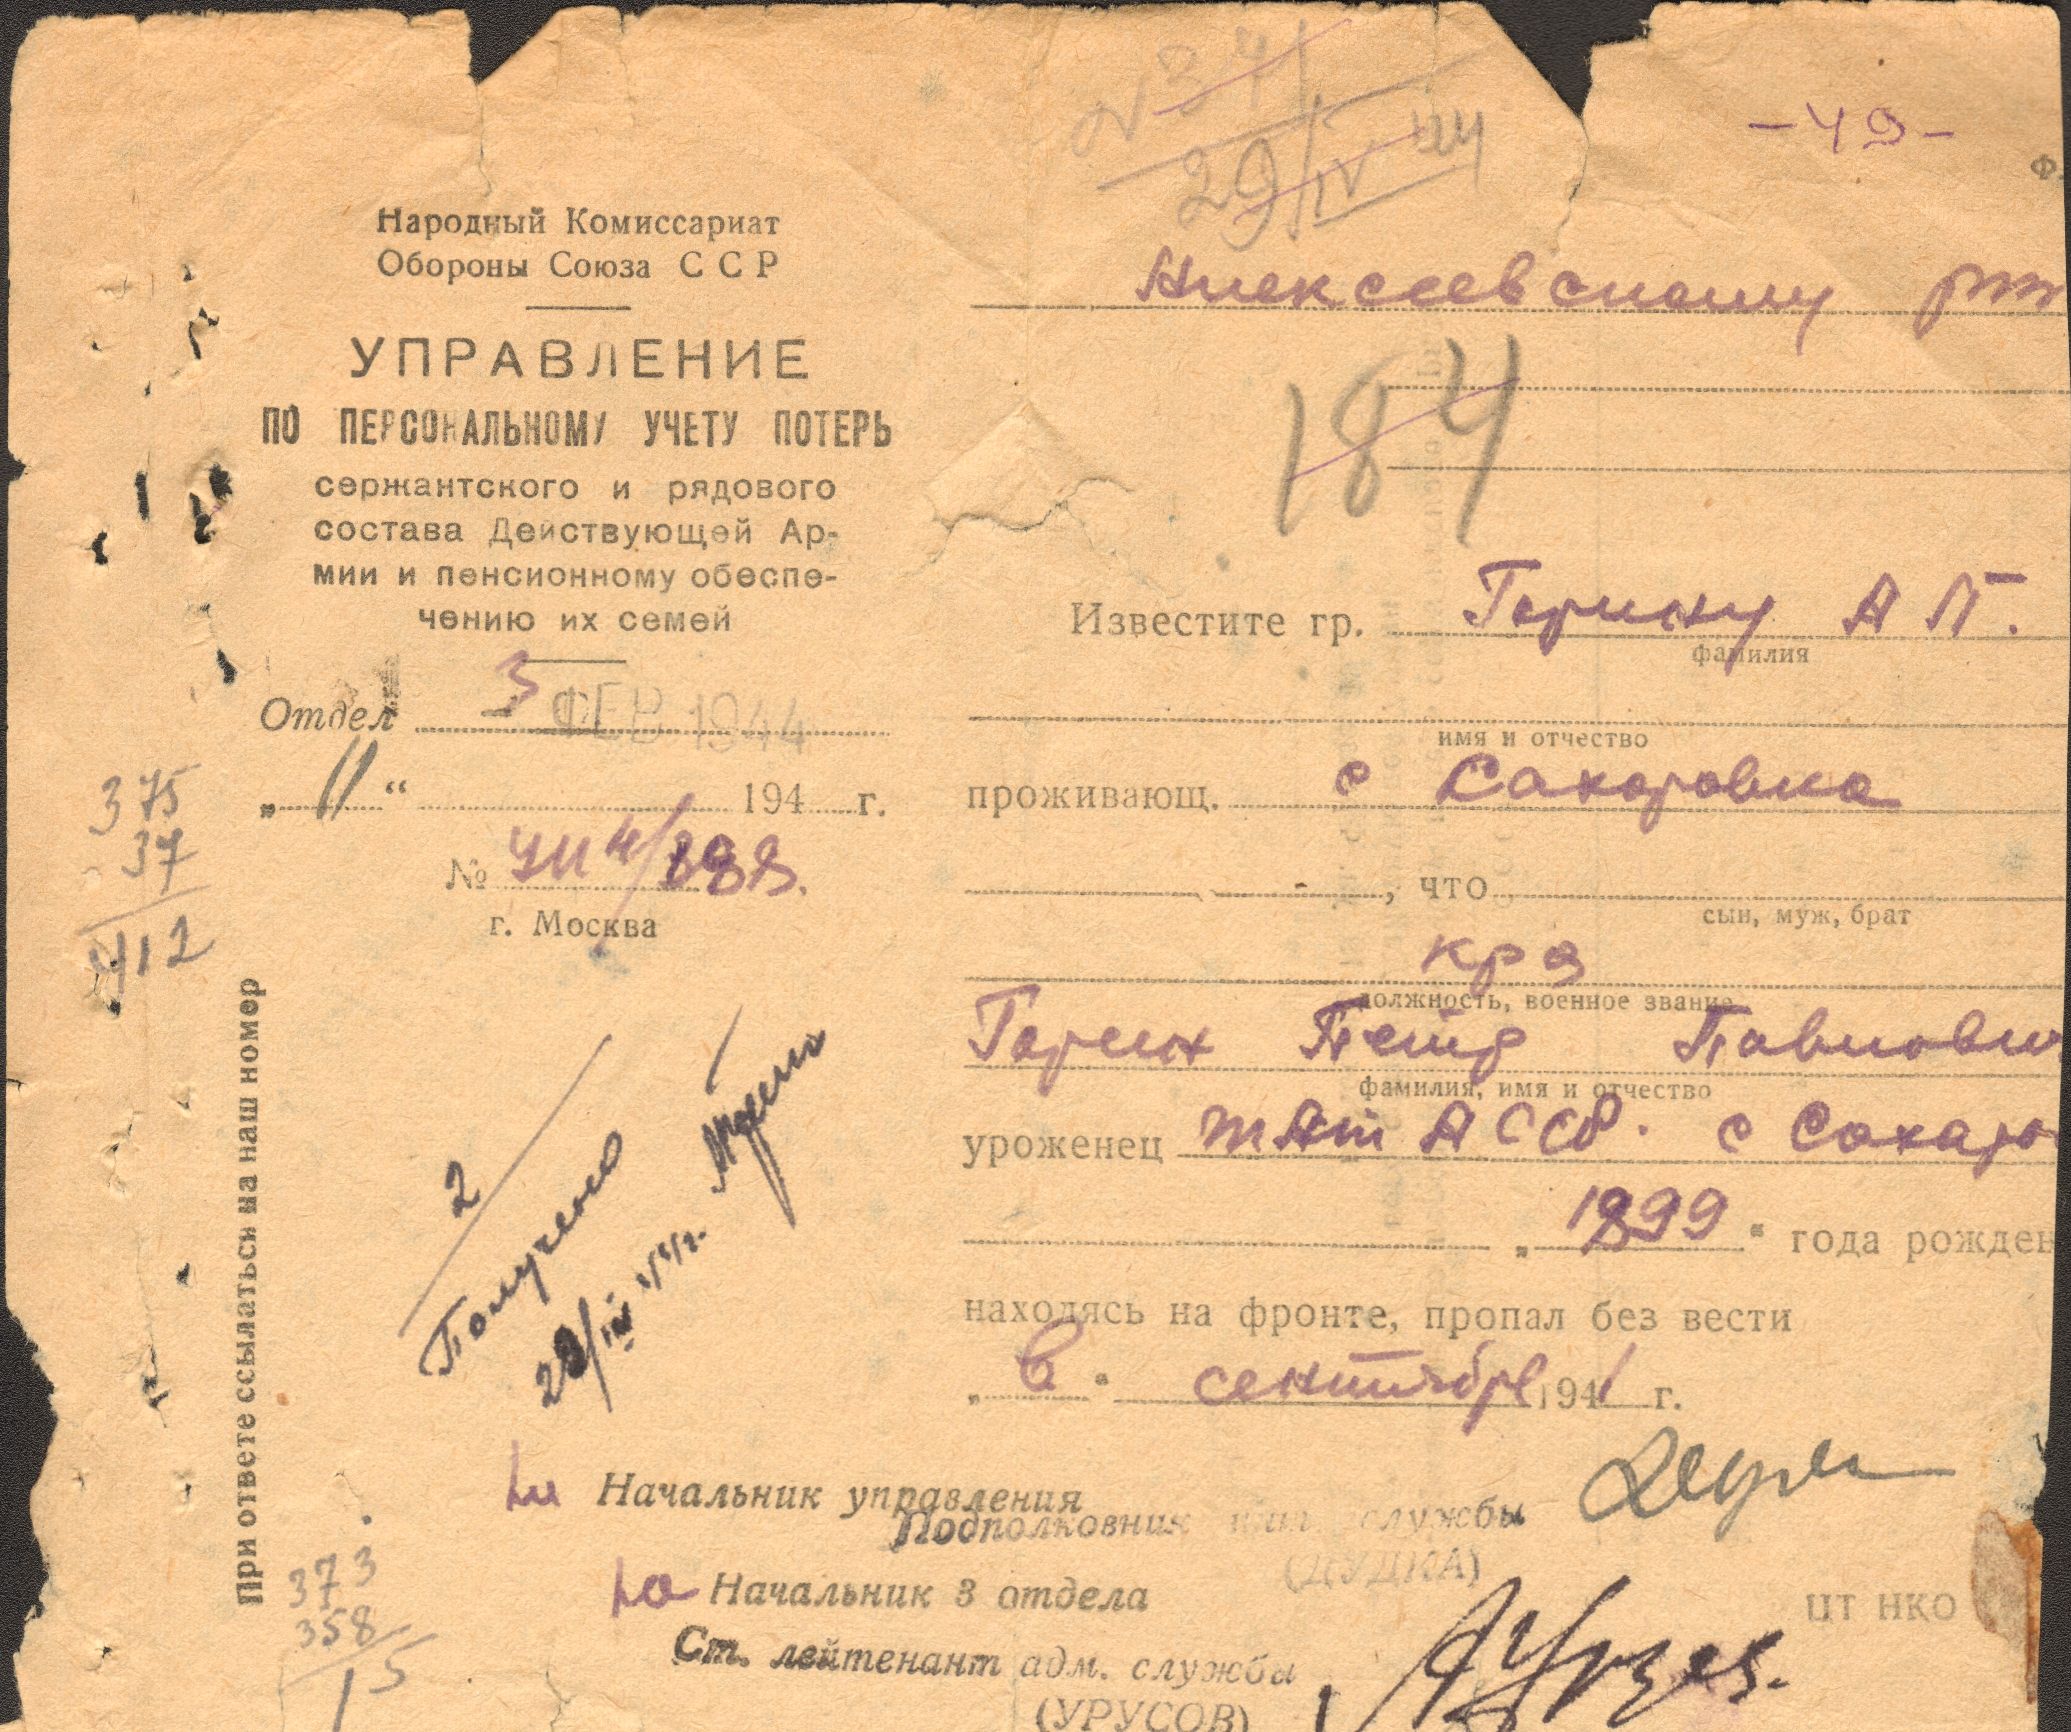 -49-
29/IV 44
Народный Комиссариат
Обороны Союза ССР
УПРАВЛЕНИЕ
ПО ПЕРСОНАЛЬНОМУ УЧЕТУ ПОТЕРЬ
сержантского и рядового
состава Действующей Ар-
мии и пенсионному обеспе-
чению их семей
Отдел 3
ФЕВ 1944
„11“ 194 г.
№
г. Москва
375
37
412
При ответе ссылаться на наш номер
2
Получено
Алексеевскому
184
Известите гр. Горину А П.
фамилия
имя и отчество
проживающ. с Сахаровка
-, что
сын, муж, брат
кр-ц
должность, военное звание
Горин Петр Павлови
фамилия, имя и отчество
уроженец тАт АССР. с Сахаро
„1899“ года рожден
находясь на фронте, пропал без вести
„в“ сентябре 1941 г.
Начальник управления
Подполковник инт службы
(ДУДКА)
Начальник 3 отдела
Ст. лейтенант адм. службы
(УРУСОВ)
цт нко
373
358
15